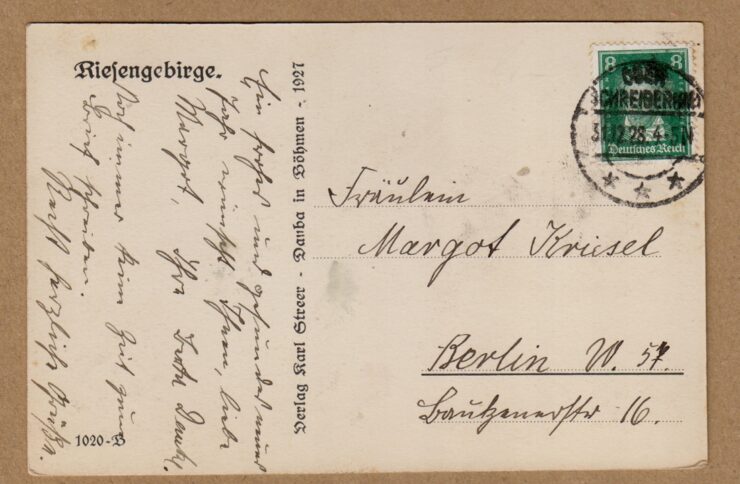 Riesengebirge.
Ein frohes und gesundes neues
Jahr wünscht Ihnen, liebe
Margot, Ihre
Noch immer keine Zeit zum
Brief schreiben.
Recht herzliche Grüße.
1020-B
Verlag Karl Streer - Dauba in Böhmen - 1927
8 8
Deutsches Reich
OBER
SCHREIBERHAU
31.12.28.4-5N
Fräulein
Margot Kriesel
Berlin W. 57.
Bautzenerstr 16.